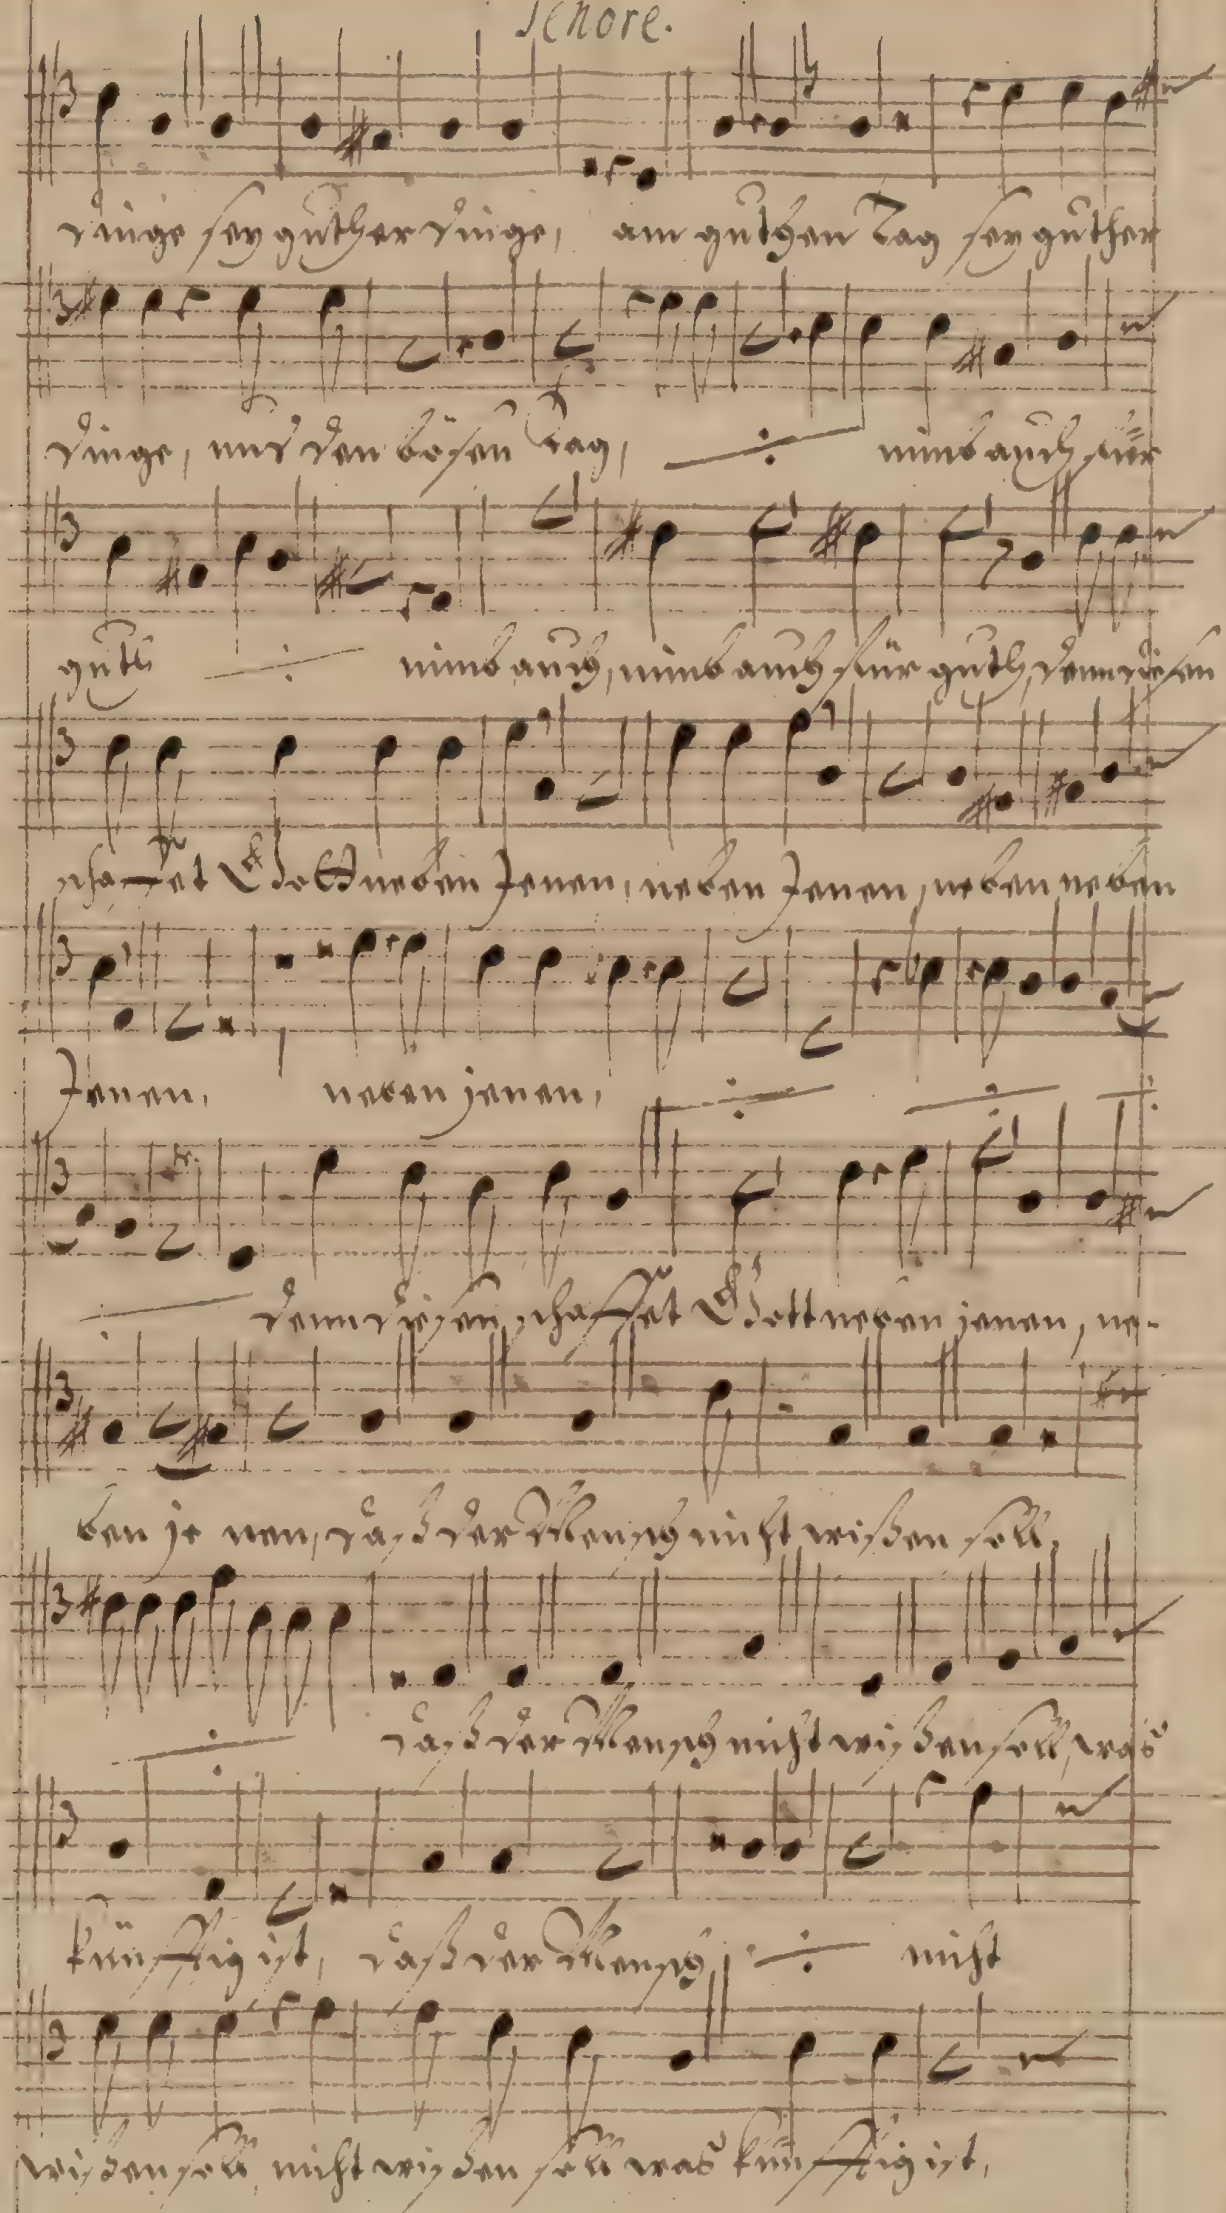 Tenore.
dinge sey guther dinge, am guthen Tag sey guther
dinge, und den bösen Tag, ÷ nimb auch für
guth ÷ nimb auch, nimb auch für guth, denn diesen
schaffet Gott neben Jenen, neben Jenen, neben neben
Jenen, neben jenen, ÷ ÷ ÷
denn diesen schaffet Gott neben jenen, ne-
ben je nen, daß der Mensch nicht wißen soll,
÷ daß der Mensch nicht wißen soll, was
künfftig ist, daß der Mensch, ÷ nicht
wißen soll, nicht wißen soll was künfftig ist,